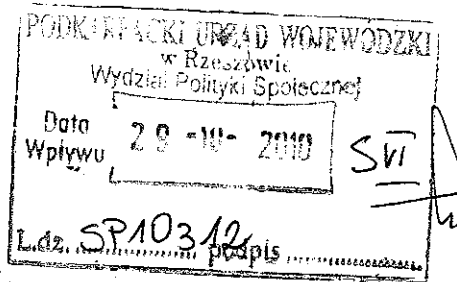 PODKARPACKI URZĄD WOJEWÓDZKI
w Rzeszowie
Wydział Polityki Społecznej
Data
Wpływu
29 -10- 2010
S VI
L.dz. SP10312 podpis